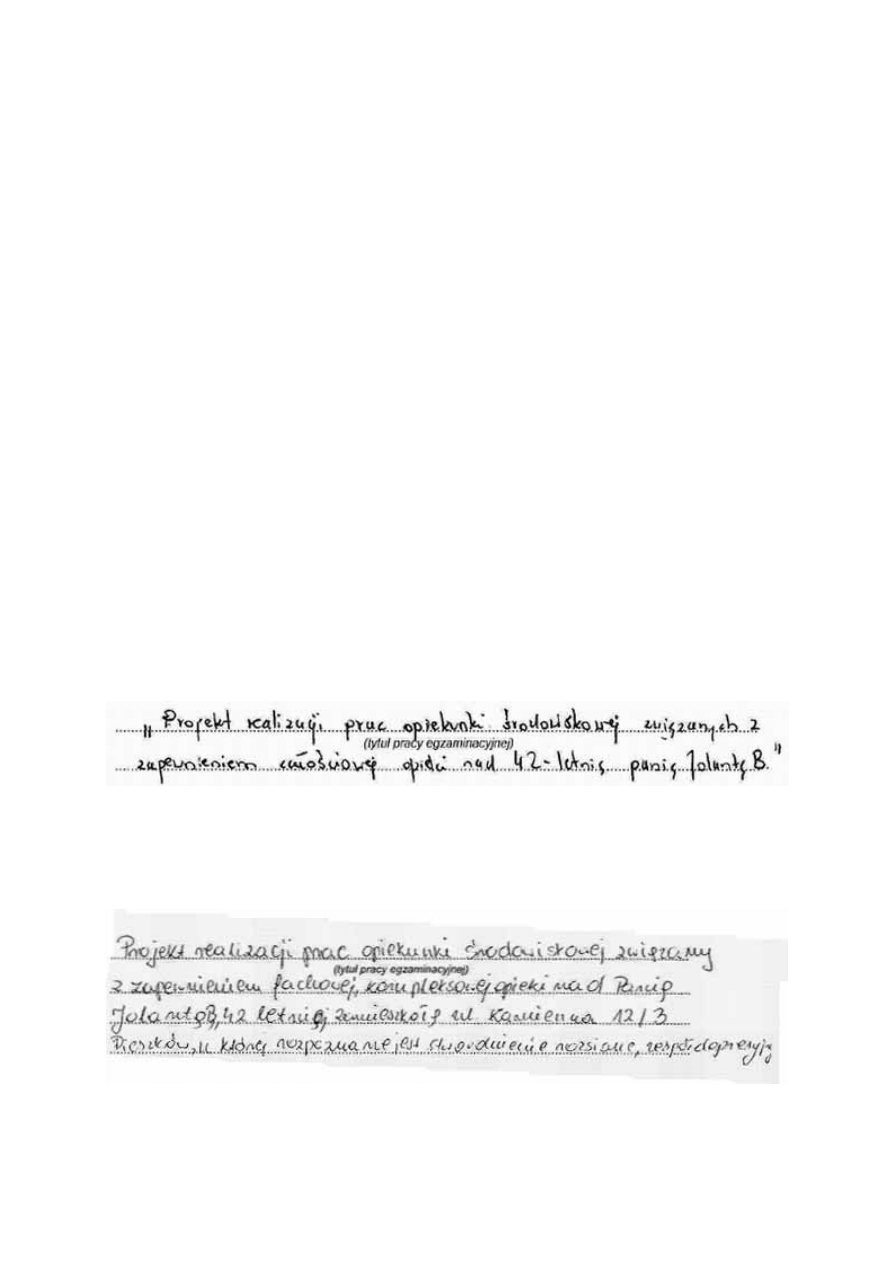 „Projekt realizacji prac opiekunki środowiskowej związanych z
(tytuł pracy egzaminacyjnej)
zapewnieniem całościowej opieki nad 42-letnią panią Jolantą B."
Projekt realizacji prac opiekunki środowiskowej związany
(tytuł pracy egzaminacyjnej)
z zapewnieniem fachowej, kompleksowej opieki nad Panią
Jolantą B, 42 letnią, zamieszkałą ul. Kamienna 12/3
u której rozpoznane jest stwardnienie rozsiane, zespół depresyjny